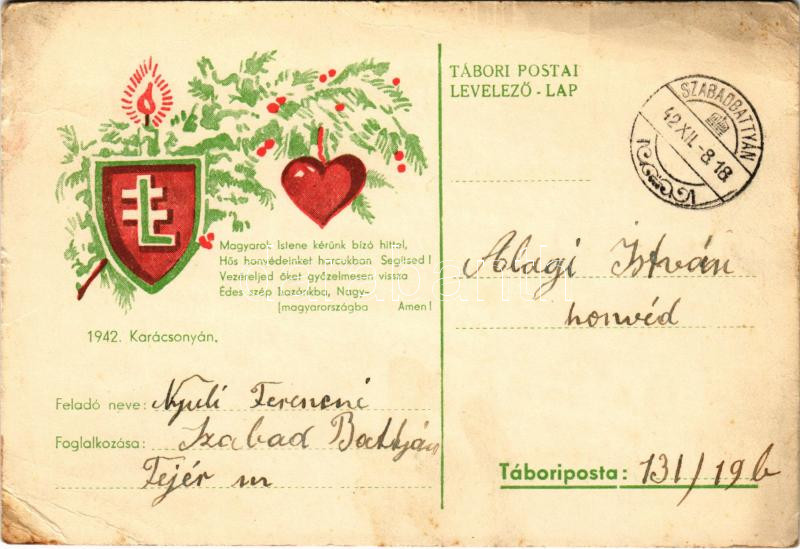 Magyarok Istene kérünk bízó hittel,
Hős honvédeinket harcukban Segítsed!
Vezéreljed őket győzelmesen vissza
Édes szép hazánkba, Nagy-
[magyarországba Amen!
1942. Karácsonyán.
Feladó neve: Nyuli Ferencné
Foglalkozása: Szabad Battyán
Fejér m
TÁBORI POSTAI
LEVELEZŐ - LAP
SZABADBATTYÁN
42 XII. -8. 18
Alagi István
honvéd
Táboriposta: 131/19 b